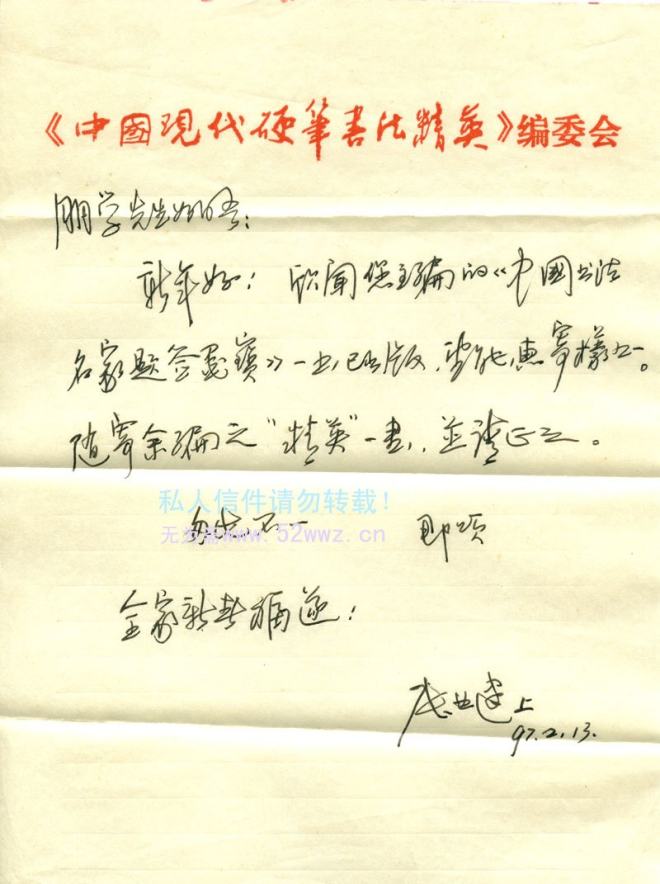 《中國現代硬筆書法精英》编委会
朋学先生如晤：
新年好！欣闻您主编的《中国书法
名家题签墨寶》一书已出版，望能惠寄样书一。
随寄余编之“精英”一书，並请正之。
私人信件请勿转载！
匆忙不一 即颂
www.52wwz.cn
全家新春福安！
上
97.2.13.